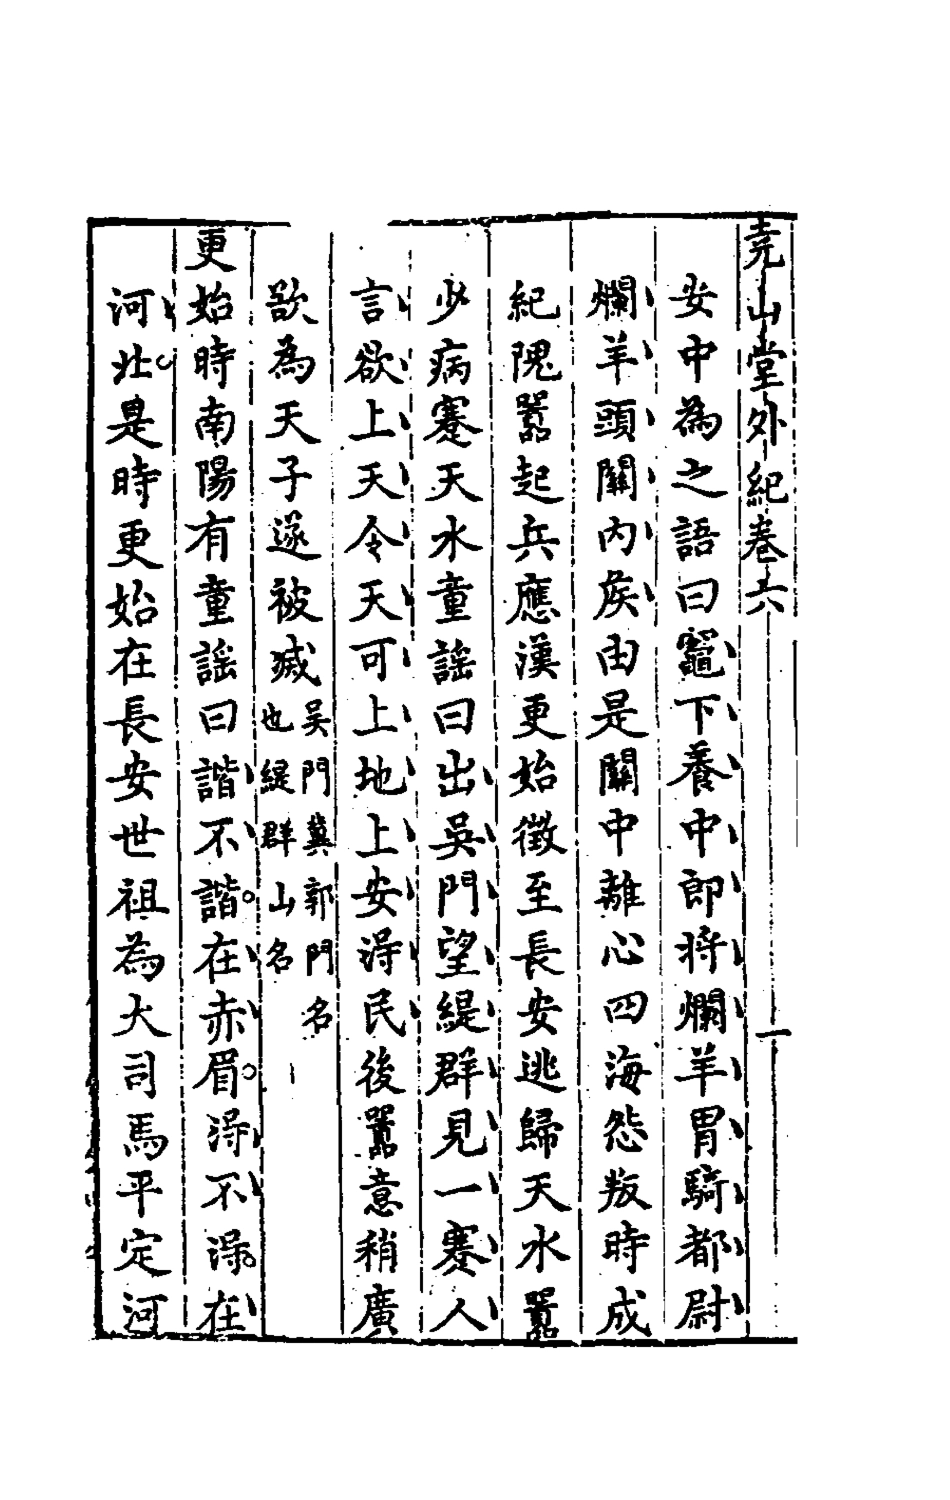 堯山堂外紀卷六
一
安中為之語曰竈下養中郎將爛羊胃騎都尉
爛羊頭關內侯由是關中離心四海怨叛時成
紀隗囂起兵應漢更始徵至長安逃歸天水囂
少病蹇天水童謠曰出吳門望緹群見一蹇人
言欲上天令天可上地上安得民後囂意稍廣
欲為天子遂被滅吳門冀郭門名也緹群山名
更始時南陽有童謠曰諧不諧在赤眉得不得在
河北是時更始在長安世祖為大司馬平定河